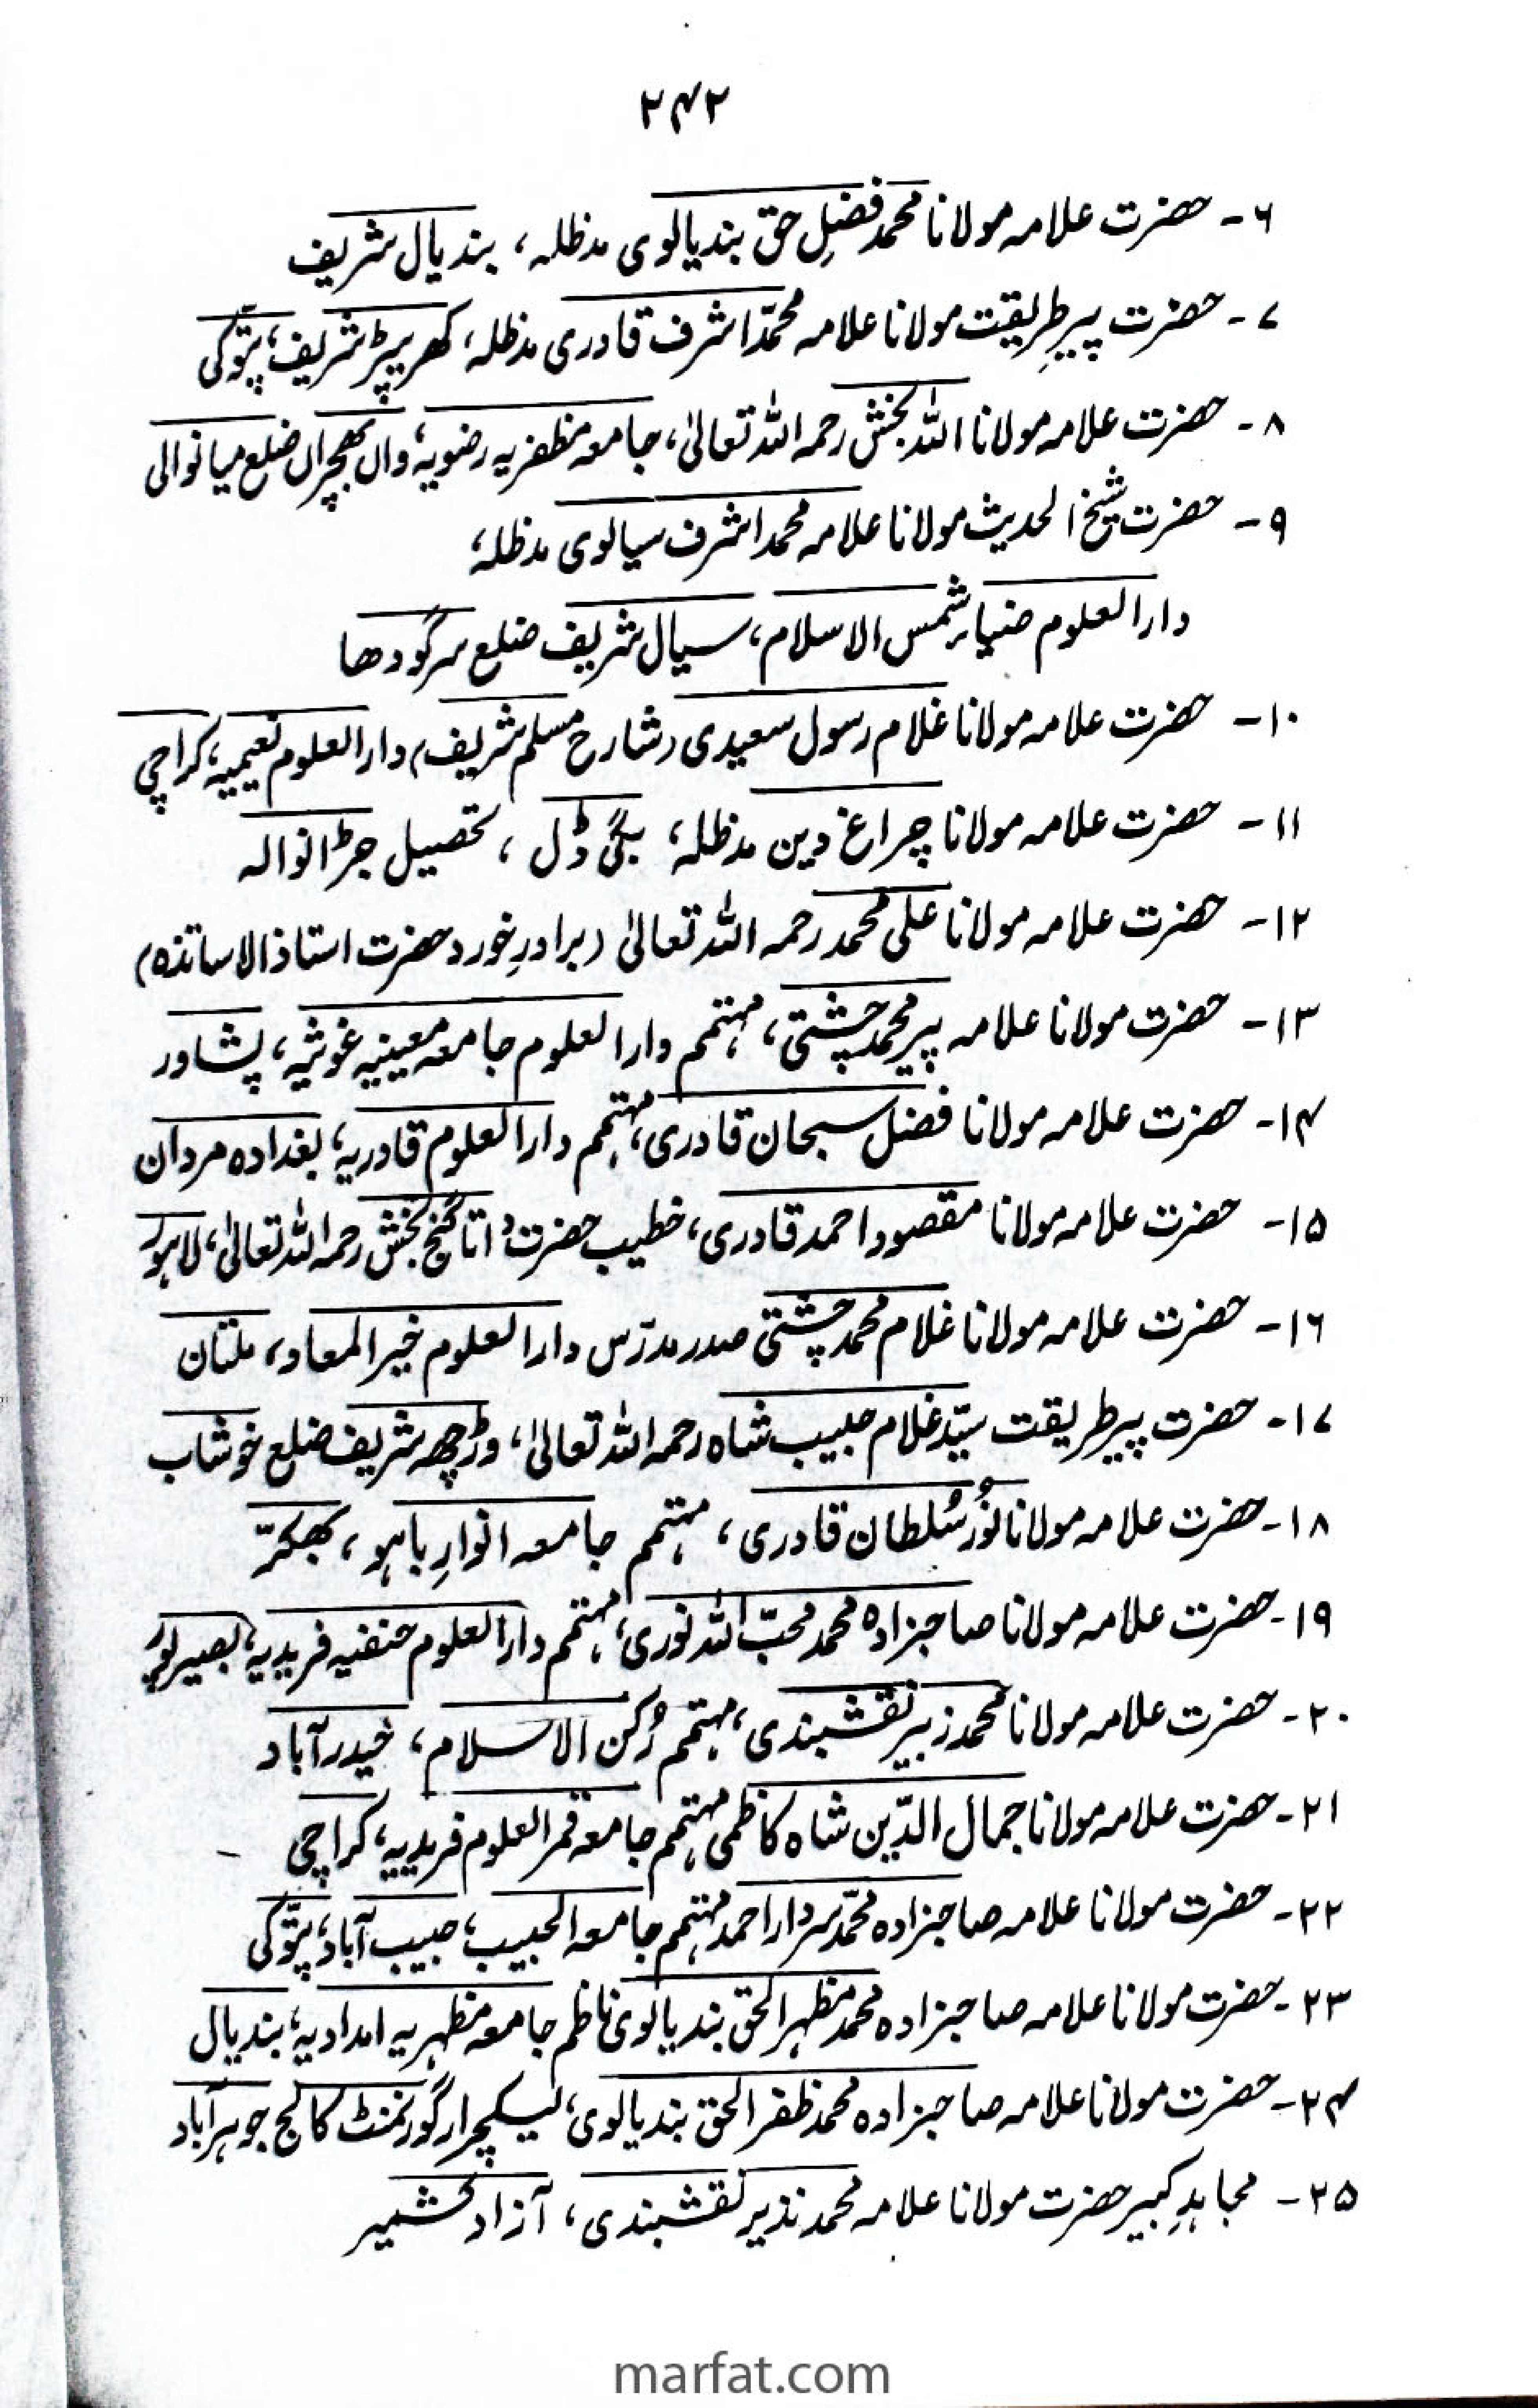 ۲۴۲
۶- حضرت علامہ مولانا محمد فضلِ حق بندیالوی مدظلہ، بندیال شریف
۷- حضرت پیرِ طریقت مولانا علامہ محمّد اشرف قادری مدظلہ، کھریپڑ شریف، پتّوکی
۸- حضرت علامہ مولانا اللہ بخش رحمہ اللہ تعالیٰ، جامعہ مظفریہ رضویہ، واں بھچراں ضلع میانوالی
۹- حضرت شیخ الحدیث مولانا علامہ محمد اشرف سیالوی مدظلہ،
دارالعلوم ضیاء شمس الاسلام، سیال شریف ضلع سرگودھا
۱۰- حضرت علامہ مولانا غلام رسول سعیدی (شارح مسلم شریف) دارالعلوم نعیمیہ، کراچی
۱۱- حضرت علامہ مولانا چراغ دین مدظلہ، بگی ڈل، تحصیل جڑانوالہ
۱۲- حضرت علامہ مولانا علی محمد رحمہ اللہ تعالیٰ (برادرِ خورد حضرت استاذ الاساتذہ)
۱۳- حضرت مولانا علامہ پیر محمد چشتی، مہتمم دارالعلوم جامعہ معینیہ غوثیہ، پشاور
۱۴- حضرت علامہ مولانا فضل سبحان قادری، مہتمم دارالعلوم قادریہ، بغدادہ مردان
۱۵- حضرت علامہ مولانا مقصود احمد قادری، خطیب حضرت داتا گنج بخش رحمہ اللہ تعالیٰ، لاہور
۱۶- حضرت علامہ مولانا غلام محمد چشتی صدر مدرّس دارالعلوم خیر المعاد، ملتان
۱۷- حضرت پیر طریقت سیّد غلام حبیب شاہ رحمہ اللہ تعالیٰ، وڑچھہ شریف ضلع خوشاب
۱۸- حضرت علامہ مولانا نُور سُلطان قادری، مہتمم جامعہ انوارِ باہو، بھکّر
۱۹- حضرت علامہ مولانا صاحبزادہ محمد محبّ اللہ نوری، مہتمم دارالعلوم حنفیہ فریدیہ، بصیرپور
۲۰- حضرت علامہ مولانا محمد زبیر نقشبندی، مہتمم رُکن الاسلام، حیدرآباد
۲۱- حضرت علامہ مولانا جمال الدّین شاہ کاظمی مہتمم جامعہ قمر العلوم فریدیہ، کراچی
۲۲- حضرت مولانا علامہ صاحبزادہ محمّد سردار احمد مہتمم جامعہ الحبیب، حبیب آباد، پتّوکی
۲۳- حضرت مولانا علامہ صاحبزادہ محمد مظہر الحق بندیالوی ناظم جامعہ مظہریہ امدادیہ، بندیال
۲۴- حضرت مولانا علامہ صاحبزادہ محمد ظفر الحق بندیالوی، لیکچرار گورنمنٹ کالج جوہرآباد
۲۵- مجاہدِ کبیر حضرت مولانا علامہ محمد نذیر نقشبندی، آزاد کشمیر
marfat.com